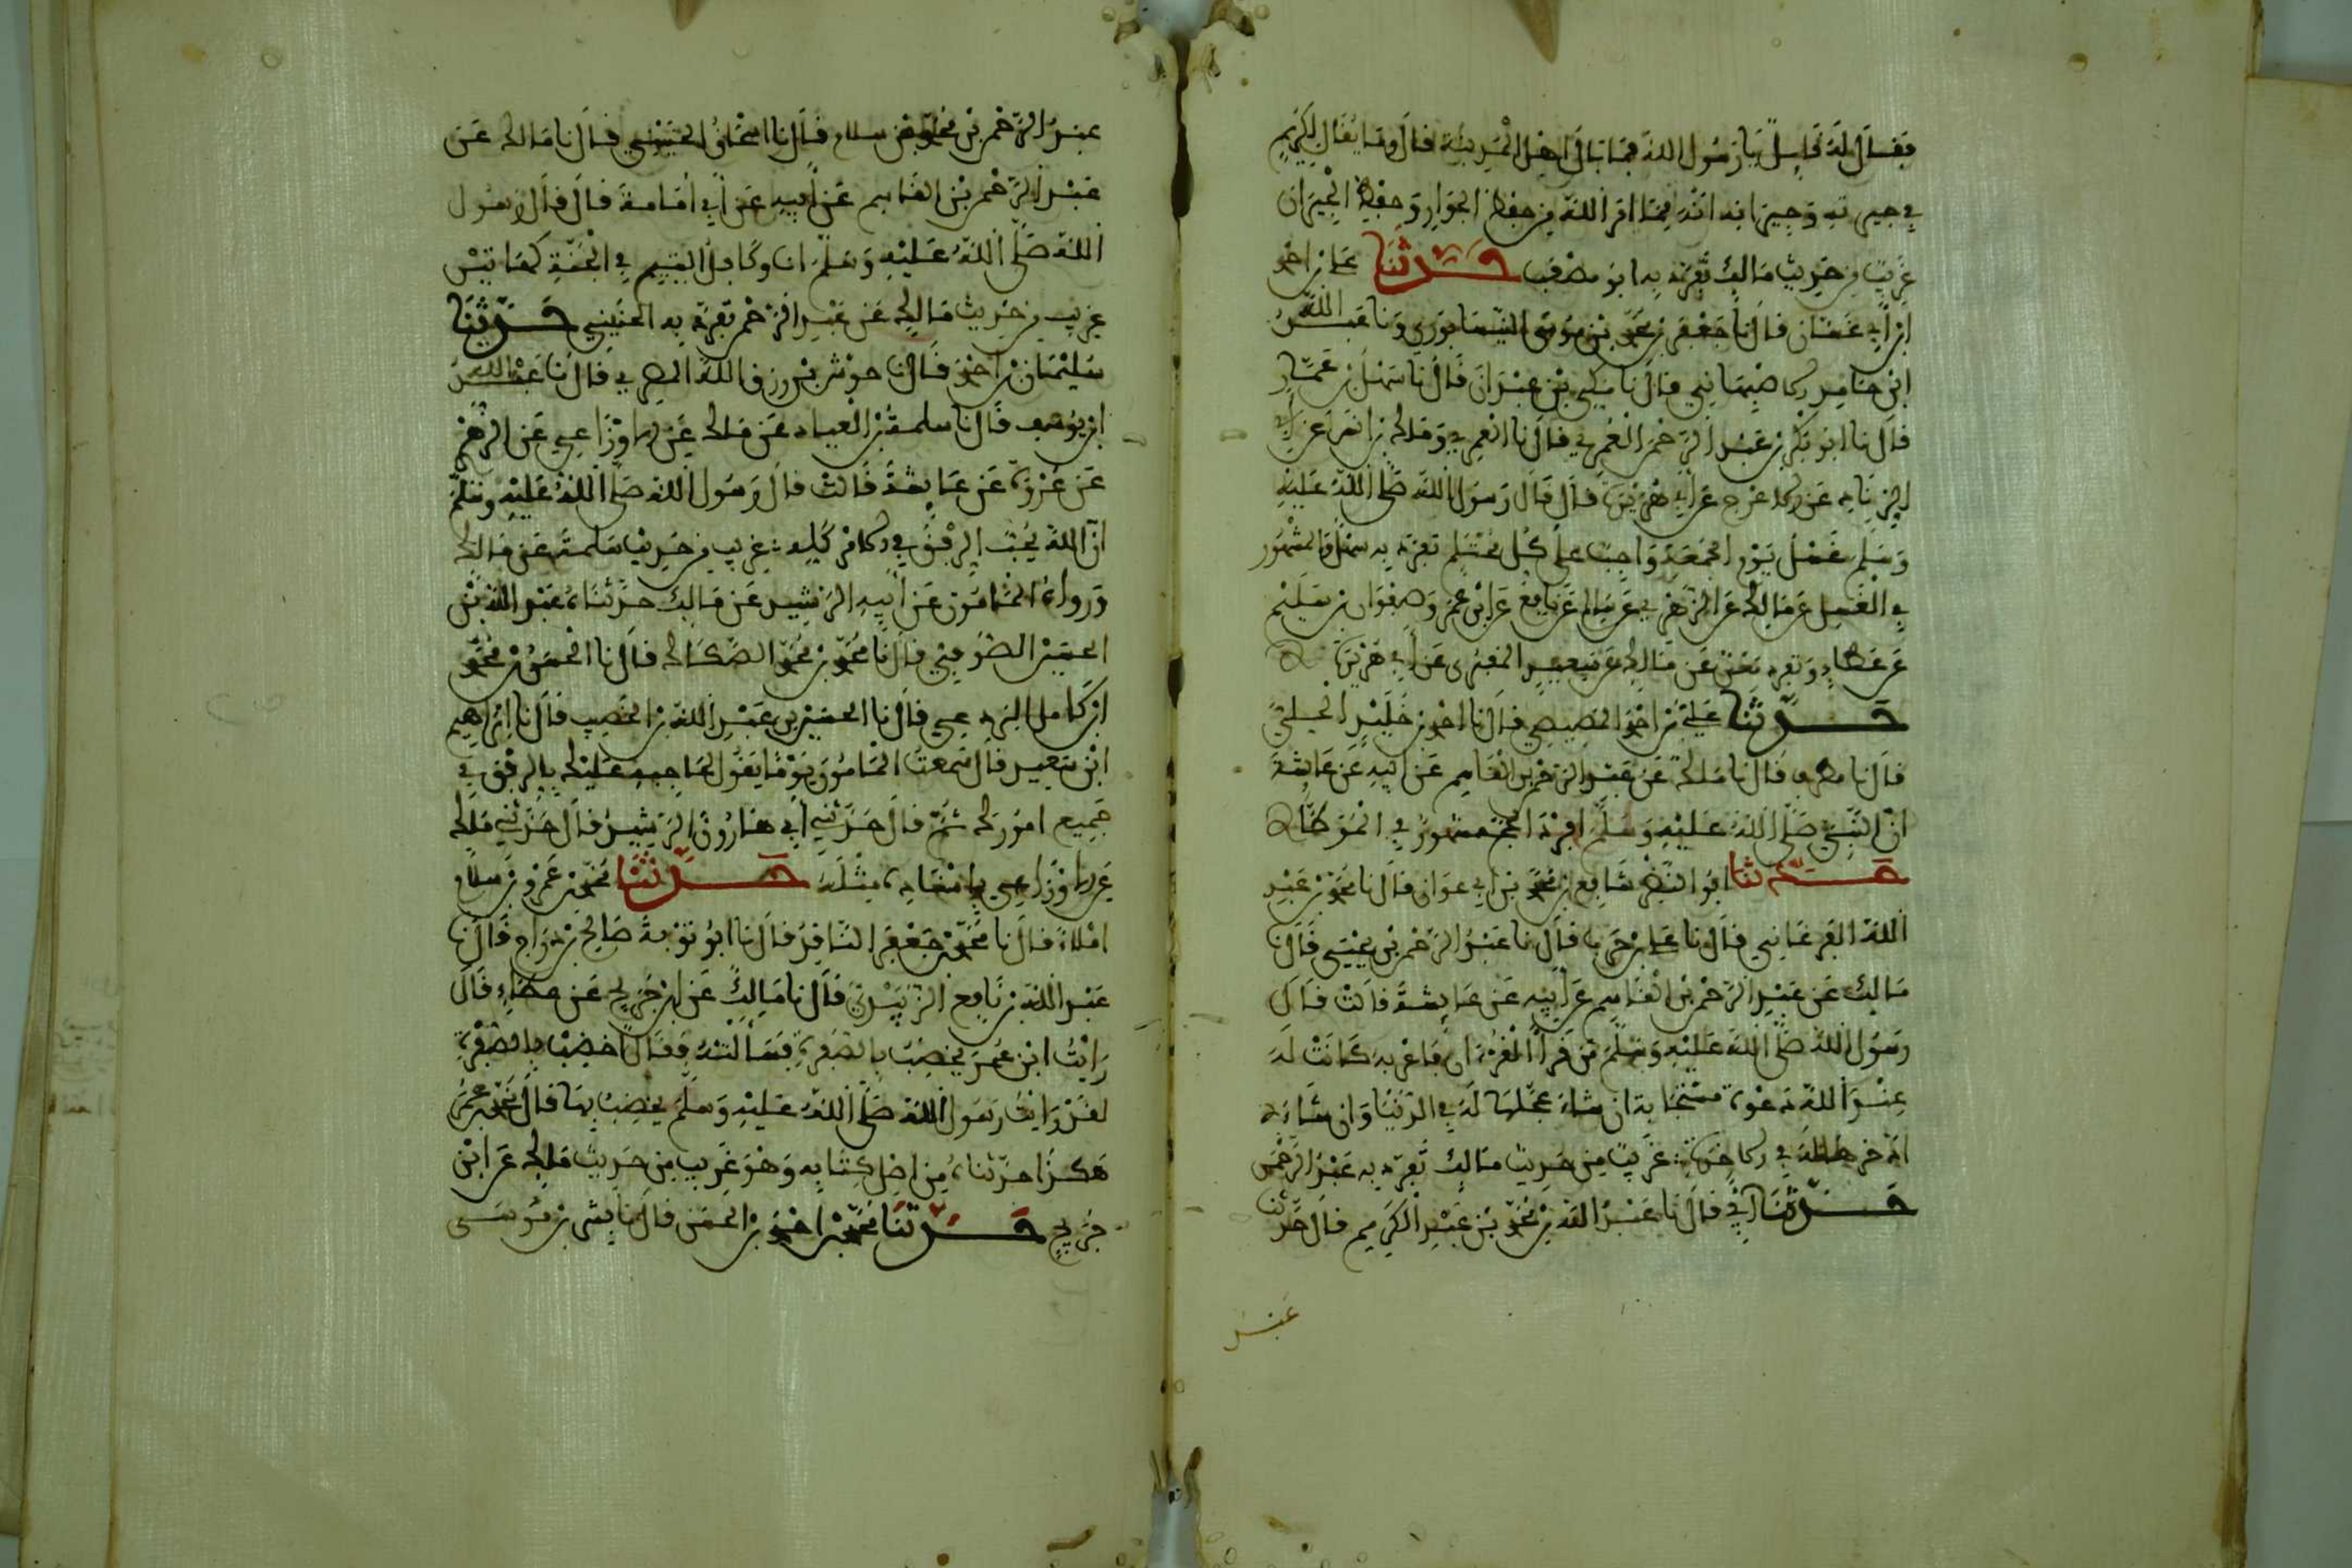 فقال له قايل يا رسول الله فما بال اهل المدينة قال وما يقال لكريم
في جيرته وجيرانه انه مما امر الله من حفظ الجوار وحفظ الجيران
غريب من حديث مالك تفرد به ابو مصعب حدثنا احمد
ابن ابي عثمان قال نا جعفر بن محمد بن موسى النيسابوري ونا عبد الله
ابن الاصبهاني قال نا مكي بن عبدان قال نا سهل بن عمار
قال نا ابو بكر بن عبد الرحمن العمري قال نا العمري ومالك بن انس عن ابي
الزناد عن الاعرج عن ابي هريرة قال قال رسول الله صلى الله عليه
وسلم غسل يوم الجمعة واجب على كل محتلم تفرد به سهل والمشهور
في الغسل عن مالك عن الزهري عن سالم عن نافع عن ابن عمر وصفوان بن سليم
عن عطاء وتفرد معن عن مالك عن سعيد المقبري عن ابي هريرة
حدثنا علي بن احمد المصيصي قال نا احمد بن خليد الحلبي
قال نا مطرف قال نا مالك عن عبد الرحمن بن القاسم عن ابيه عن عائشة
ان النبي صلى الله عليه وسلم افرد الحج مشهور في الموطا
حدثنا ابو النضر شافع بن محمد بن ابي عوانة قال نا محمد بن عبد
الله الفرغاني قال نا علي بن حرب قال نا عبد الرحمن بن يحيى قال نا
مالك عن عبد الرحمن بن القاسم عن ابيه عن عايشة قالت قال
رسول الله صلى الله عليه وسلم من قرا القران فاعربه كانت له
عند الله دعوة مستجابة ان شاء عجلها له في الدنيا وان شاء
ادخرها له في الاخرة غريب من حديث مالك تفرد به عبد الرحمن
حدثنا ابي قال نا عبد الله بن محمد بن عبد الكريم قال حدثنا
عبد
عبد الرحمن بن محمد بن سلام قال نا اسحاق الحنيني قال نا مالك عن
عبد الرحمن بن القاسم عن ابيه عن ابي امامة قال قال رسول
الله صلى الله عليه وسلم انا وكافل اليتيم في الجنة كهاتين
غريب من حديث مالك عن عبد الرحمن تفرد به الحنيني حدثنا
سليمان بن احمد قال نا حوشي بن رزق الله المصري قال نا عبد الله
ابن يوسف قال نا سلمة بن العيار عن مالك عن الاوزاعي عن الزهري
عن عروة عن عايشة قالت قال رسول الله صلى الله عليه وسلم
ان الله يحب الرفق في الامر كله غريب من حديث سلمة عن مالك
ورواه المامون عن ابيه الرشيد عن مالك حدثناه عبد الله بن
الحسين الصوفي قال نا محمد بن محمد الضحاك قال نا الحسن بن محمد
ابن كامل قال نا الحسين بن عبد الله بن الخصيب قال نا ابراهيم
ابن سعيد قال سمعت المامون يوما يقول لحاجبه عليك بالرفق في
جميع امورك ثم قال حدثني ابي هارون الرشيد قال حدثني مالك
عن الاوزاعي باسناده مثله حدثنا محمد بن عمرو بن سلام
املاء قال نا محمد بن جعفر الناقد قال نا ابو توبة صالح بن دراج قال نا
عبد الله بن نافع الزبيري قال نا مالك عن ابن جريج عن عطاء قال
رايت ابن عمر يخضب بالصفرة فسالته فقال اخضب بالصفرة
لقد رايت رسول الله صلى الله عليه وسلم يخضب بها قال محمد بن عمر
هكذا حدثناه من اصل كتابه وهو غريب من حديث مالك عن ابن
جريج حدثنا محمد بن احمد بن الحسن قال نا بشر بن موسى